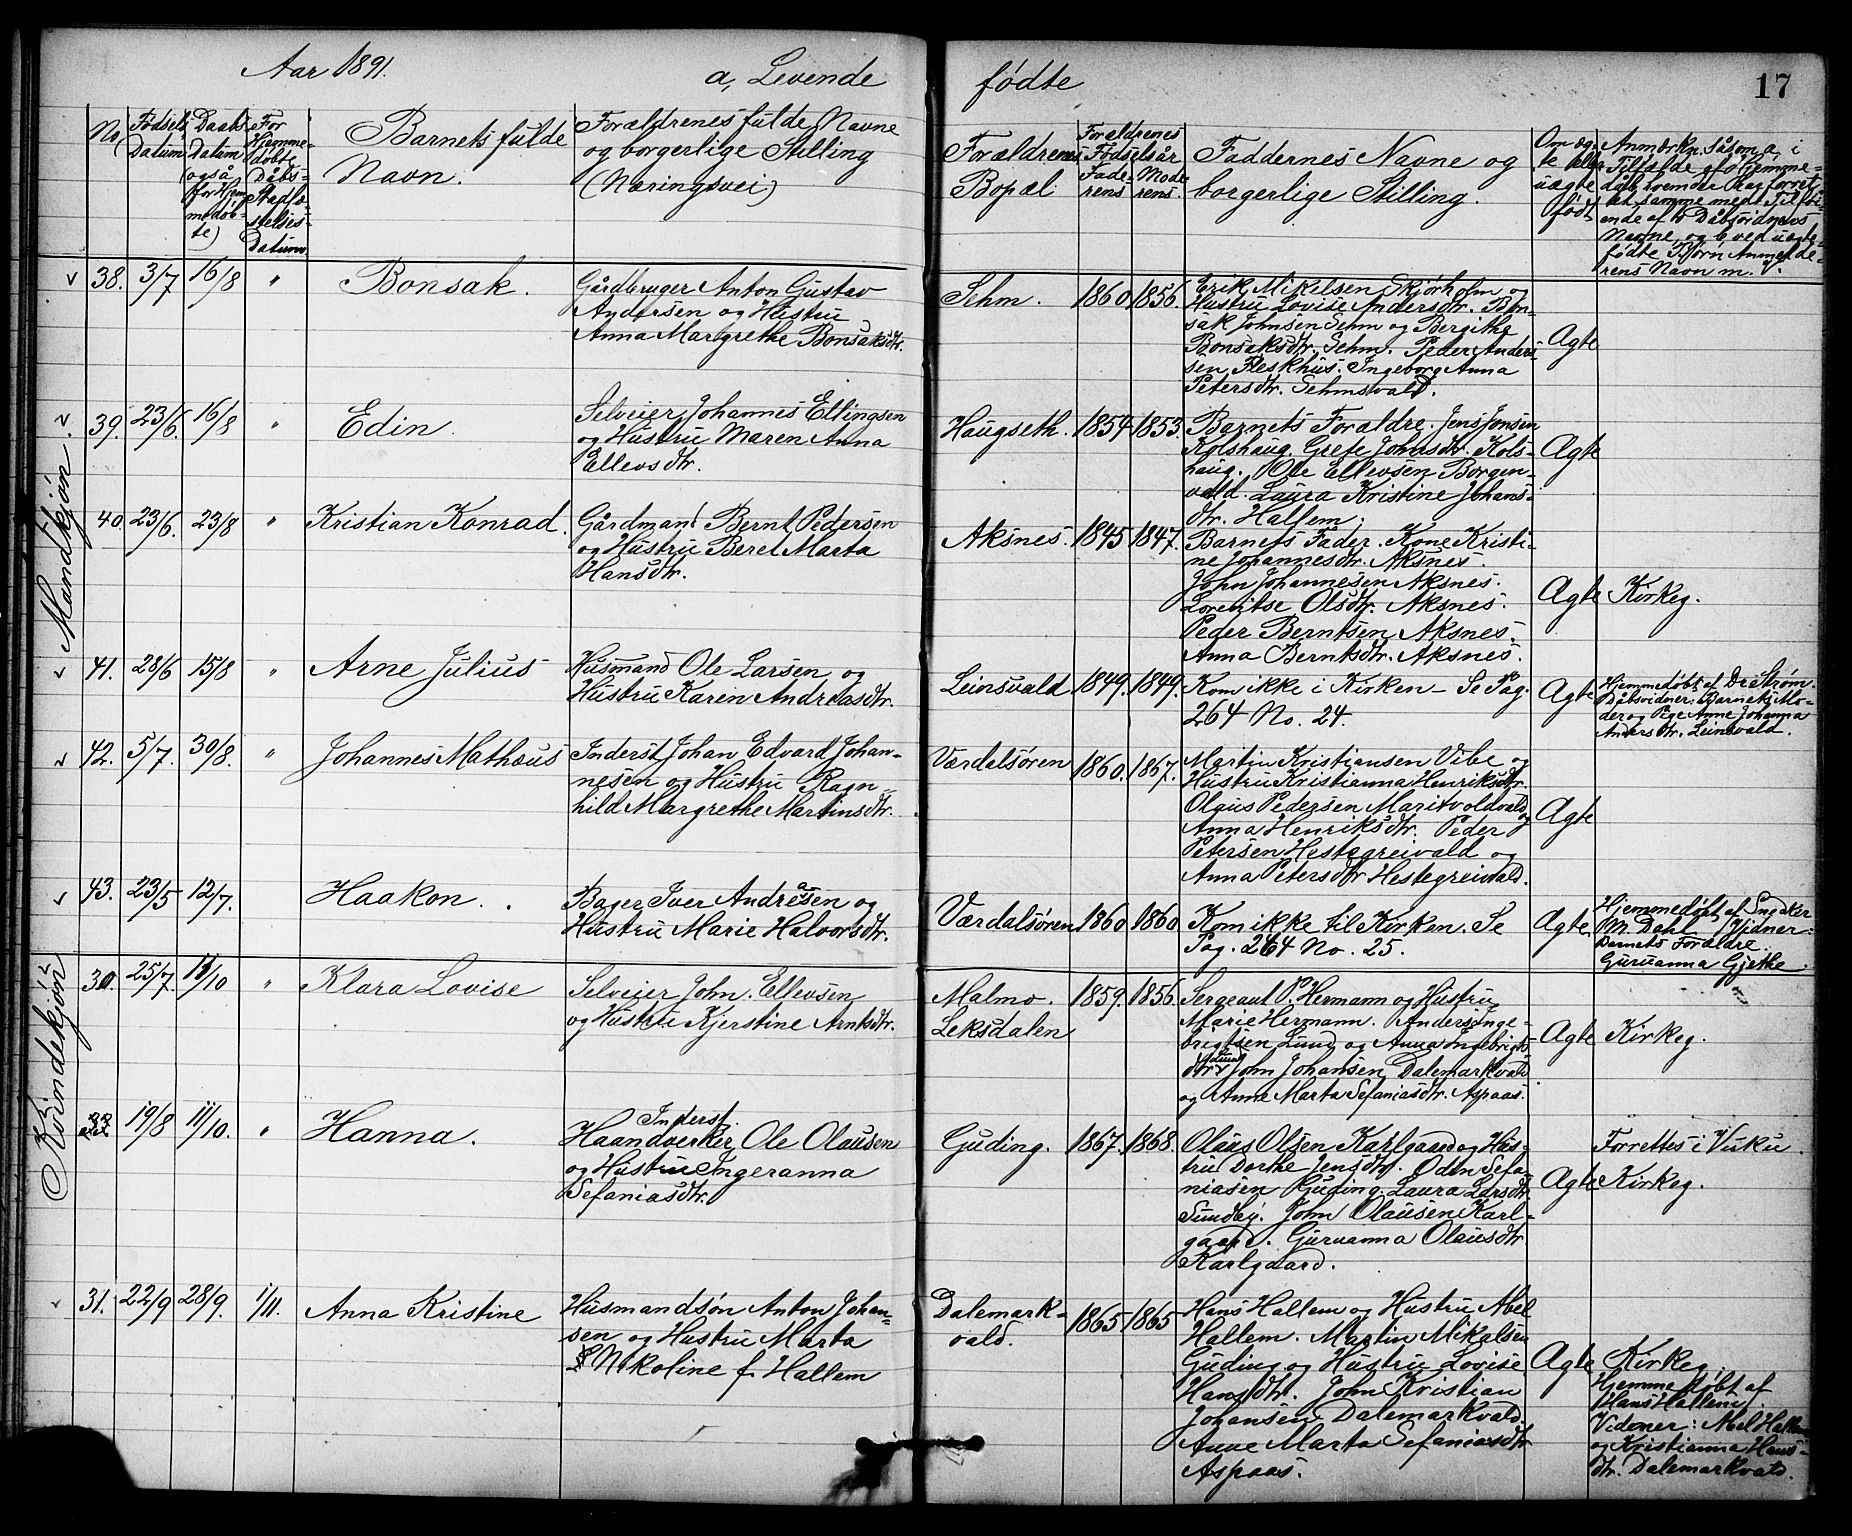 Aar 1891.
a, Levende
fødte
17
No
Fødsels
Datum
Daabs
Datum
(også
for Hjem-
medøb-
te)
For
Hjemme-
døbte
Dåbs-
Stadfæ-
stelses-
Datum
Barnets fulde
Navn.
Forældrenes fulde Navne
og borgerlige Stilling
(Næringsvei)
Forældrenes
Bopæl
Forældrenes
Fødselsår
Fade- Mode-
rens rens.
Faddernes Navne og
borgerlige Stilling.
Om æg-
te eller
uægte
født
Anmærkn. Såsom a i
Tilfælde af Hjemme-
dåb hvem der har forret-
tet samme med Tilføi-
ende af to Dåbsvidners
Navne, og b ved uægte-
fødte Børn Anmelde-
rens Navn m. V.
Mandkjøn.
38. 3/7 16/8 " Bonsak.
Gårdbruger Anton Gustav
Andersen og Hustru
Anna Margrethe Bonsaksdtr.
Sehm. 1860. 1856.
Erik Mikelsen Skjørholm og
Hustru Lovise Andersdtr. Bon-
sak Johnsen Sehm og Bergithe
Bonsaksdtr. Sehm. Peder Ander-
sen Fleskhus. Ingeborg Anna
Petersdtr. Sehmsvald.
Ægte
39. 23/6. 16/8 " Edin
Selveier Johannes Ellingsen
og Hustru Maren Anna
Ellevsdtr.
Haugseth. 1854 1853.
Barnets Forældre. Jens Jonsen
Kolshaug. Grete Johnsdtr. Kols-
haug. Ole Ellevsen Borgen-
vald. Laura Kristine Johans-
dtr. Hallem.
Ægte
40. 23/6. 23/8 " Kristian Konrad.
Gårdmand Bernt Pedersen
og Hustru Beret Marta
Hansdtr.
Aksnes. 1845 1847.
Barnets Fader. Kone Kristi-
ne Johannesdtr. Aksnes.
John Johannesen Aksnes.
Lorentse Olsdtr. Aksnes.
Peder Berntsen Aksnes.
Anna Berntsdtr. Aksnes.
Ægte Kirkeg.
41. 28/6 15/8 " Arne Julius
Husmand Ole Larsen og
Hustru Karen Andreasdtr.
Leinsvald 1849. 1849.
Kom ikke i Kirken – Se Pag.
264 No. 24.
Ægte
Hjemmedøbt af Dr Strøm.
Dåbsvidner: Barnets Mo-
der og Pige Anne Johanna
Andersdtr. Leinsvald.
42. 5/7. 30/8. " Johannes Mathæus
Inderst Johan Edvard Johan-
nesen og Hustru Ragn-
hild Margrethe Martinsdtr.
Værdalsøren 1860. 1867.
Martin Kristiansen Vibe og
Hustru Kristianna Henriksdtr.
Olaus Pedersen Maritvoldvald og
Anna Henriksdtr. Peder
Petersen Hestegreivald og
Anna Petersdtr Hestegreivald.
Ægte
43. 23/5 12/7. Haakon.
Bager Iver Andreasen og
Hustru Marie Halvorsdtr.
Værdalsøren 1860 1860
Kom ikke til Kirken. Se
Pag. 264 No. 25.
Ægte.
Hjemmedøbt af Snedker
M. Dahl. Vidner:
Barnets Forældre.
Guruanna Gjethe.
Kvindekjøn
30. 25/7. 11/10 " Klara Lovise
Selveier John Ellevsen
og Hustru Kjerstine Arntsdtr.
Malmo.
Leksdalen
1859. 1856.
Sergeant P. Hermann og Hustru
Marie Hermann. Anders Inge-
brigtsen Lund og Anna Ingebrigts-
dtr. Lund John Johansen Dalemarkvald
og Anne Marta Sefaniasdtr. Aspaas.
Ægte Kirkeg.
19/8 11/10. " Hanna.
Inderst
Haandverker Ole Olausen
og Hustru Ingeranna
Sefaniasdtr.
Guding. 1867. 1868.
Olaus Olsen Karlgaard og Hus-
tru Dorthe Jensdtr. Odin Sefa-
niasen Guding. Laura Larsdtr
Sundby. John Olausen Karl-
gaard. Guruanna Olausdtr
Karlgaard.
Ægte
Forrettes i Vuku.
Kirkeg.
31. 22/9 28/9. 1/11. Anna Kristine
Husmandsøn Anton Johan-
sen og Hustru Marta
Nikoline f. Hallem
Dalemark-
vald.
1865 1865
Hans Hallem og Hustru Abel
Hallem. Martin Mikalsen
Guding og Hustru Lovise
Hansdtr. John Kristian
Johansen Dalemarkvald.
Anne Marta Sefaniasdtr
Aspaas.
Ægte
Kirkeg.
Hjemmedøbt af
Hans Hallem.
Vidner: Abel Hallem
og Kristianna Hans-
dtr. Dalemarkvald.